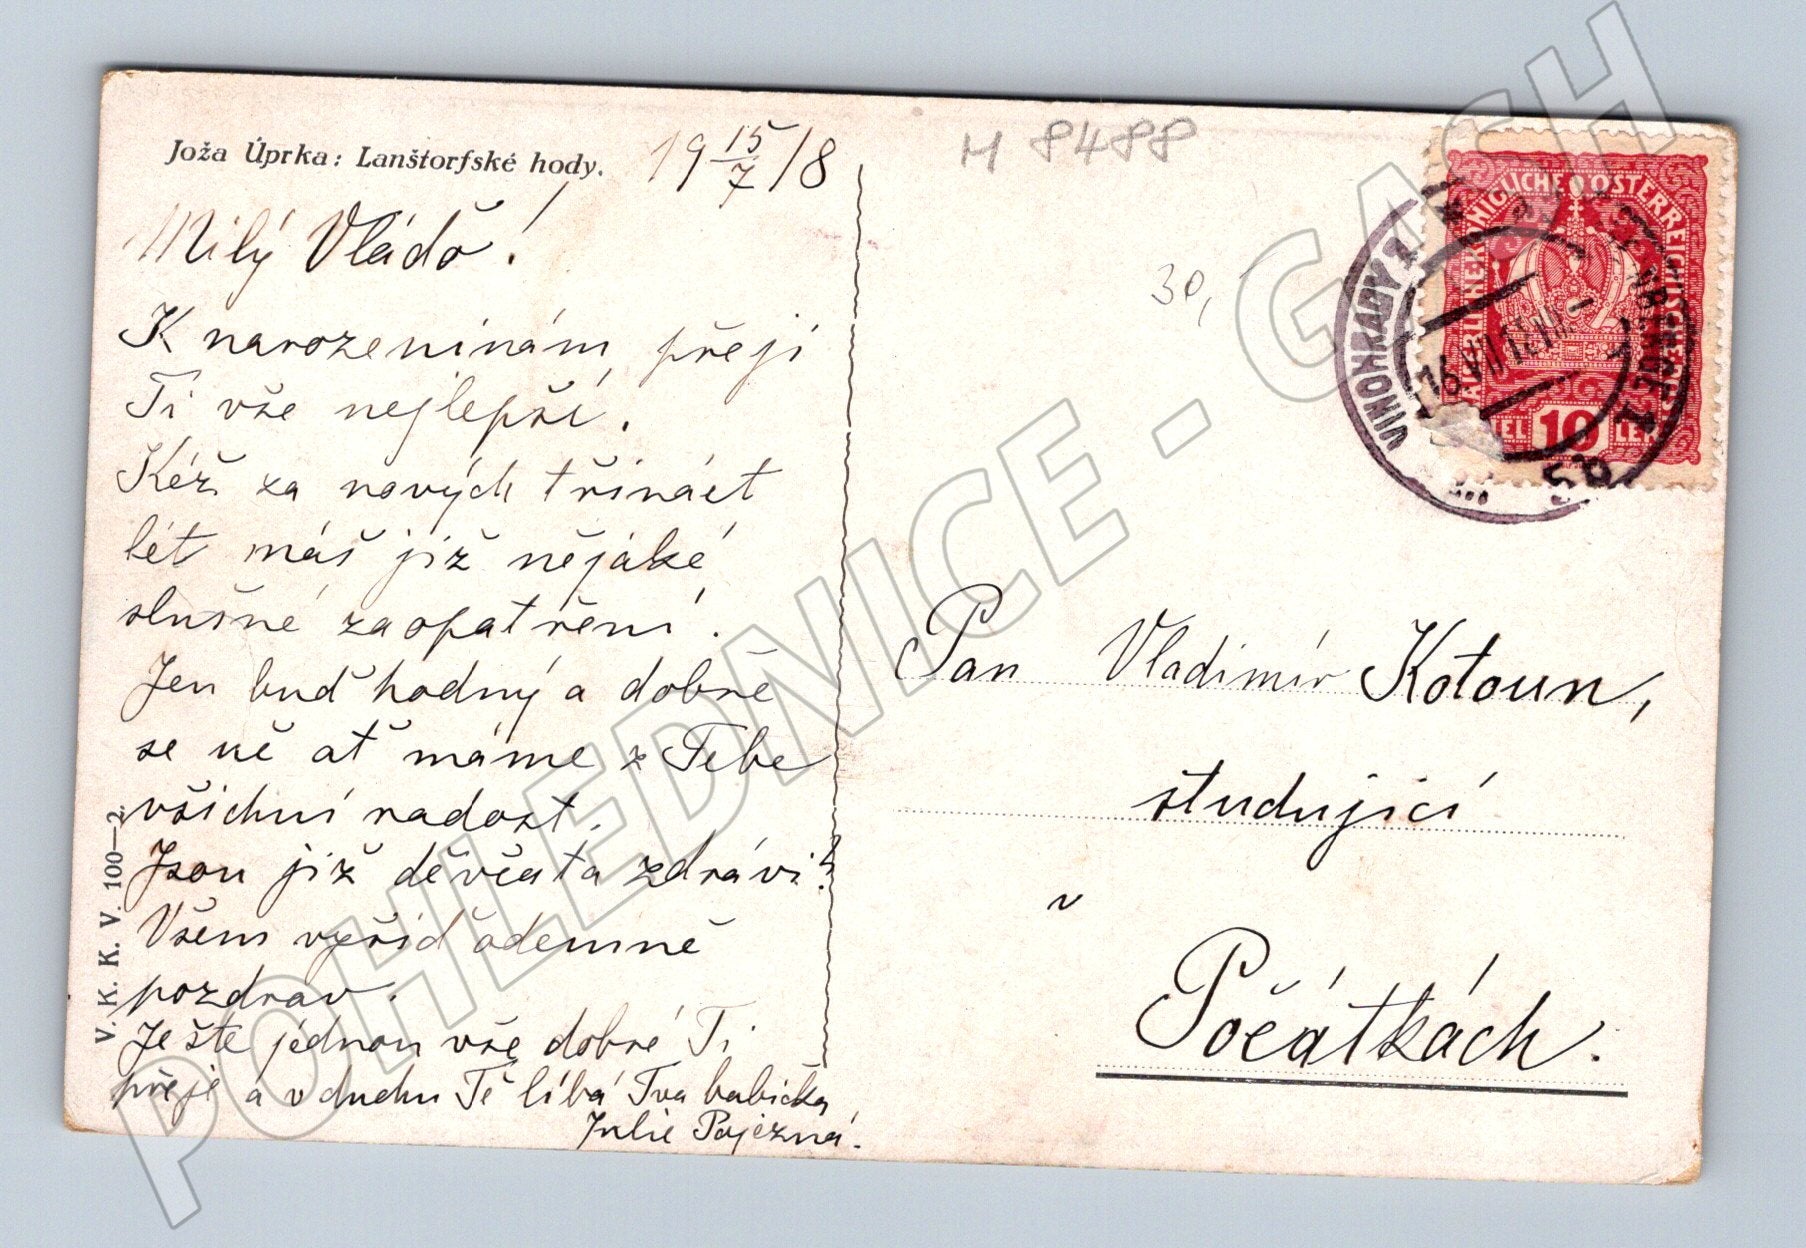 Joža Úprka: Lanštorfské hody.
19 15/7 18
M 8488
30,
Milý Vládo!
K narozeninám přeji
Ti vše nejlepší.
Kéž za nových třináct
lét máš již nějaké
slušné zaopatření.
Jen buď hodný a dobře
se uč ať máme z Tebe
všichni radost.
Jsou již děvčata zdrávi?
Všem vyřiď
pozdrav.
Ješte jednou vše dobré Ti
přeje a v duchu Tě líbá Tva babička
Julie Pojezná.
V. K. K. V. 100—2.
Pan Vladimír Kotoun,
studující
v
Počátkách.
KAISERLICHE KÖNIGLICHE ÖSTERREICHISCHE POST
HELLER 10 HELLER
VINOHRADY 1
WEINBERGE 1
16.VII.18
5b
POHLEDNICE - GASH